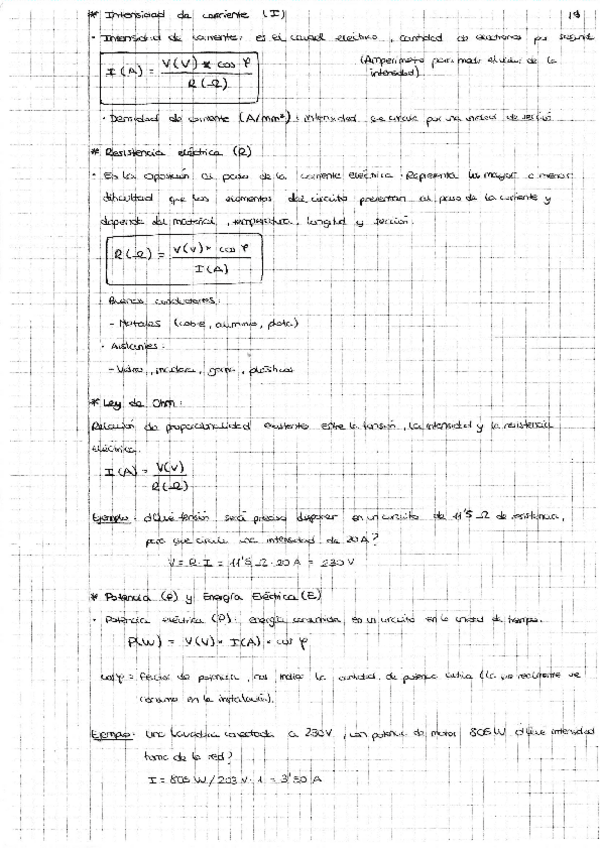 * Intensidad de corriente (I) 19
· Intensidad de corriente: es el caudal eléctrico, cantidad de electrones por segundo
I (A) = V(V) * cos φ / R(Ω) (Amperímetro para medir el valor de la
intensidad)
· Densidad de corriente (A/mm²): intensidad que circula por una unidad de sección
* Resistencia eléctrica (R)
· Es la oposición al paso de la corriente eléctrica. Representa la mayor o menor
dificultad que los elementos del circuito presentan al paso de la corriente y
depende del material, temperatura, longitud y sección.
R(Ω) = V(V) * cos φ / I(A)
· Buenos conductores:
- Metales (cobre, aluminio, plata)
· Aislantes:
- Vidrio, madera, goma, plásticos
* Ley de Ohm:
Relación de proporcionalidad existente entre la tensión, la intensidad y la resistencia
eléctrica.
I (A) = V(V) / R(Ω)
Ejemplo: ¿Qué tensión será preciso disponer en un circuito de 11'5 Ω de resistencia,
para que circule una intensidad de 20 A?
V = R · I = 11'5 Ω · 20 A = 230 V
* Potencia (P) y Energía Eléctrica (E)
· Potencia eléctrica (P): energía consumida en un circuito en la unidad de tiempo.
P(W) = V(V) * I(A) * cos φ
cos φ = factor de potencia, nos indica la cantidad de potencia activa (la que realmente se
consume en la instalación).
Ejemplo: Una lavadora conectada a 230V, con potencia de motor 805 W ¿Qué intensidad
toma de la red?
I = 805 W / 203 V · 1 = 3'50 A